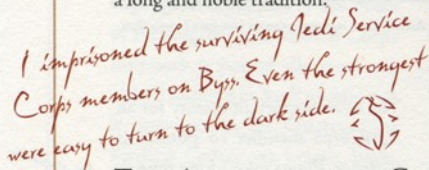 a long and noble tradition.
I imprisoned the surviving Jedi Service
Corps members on Byss. Even the strongest
were easy to turn to the dark side.